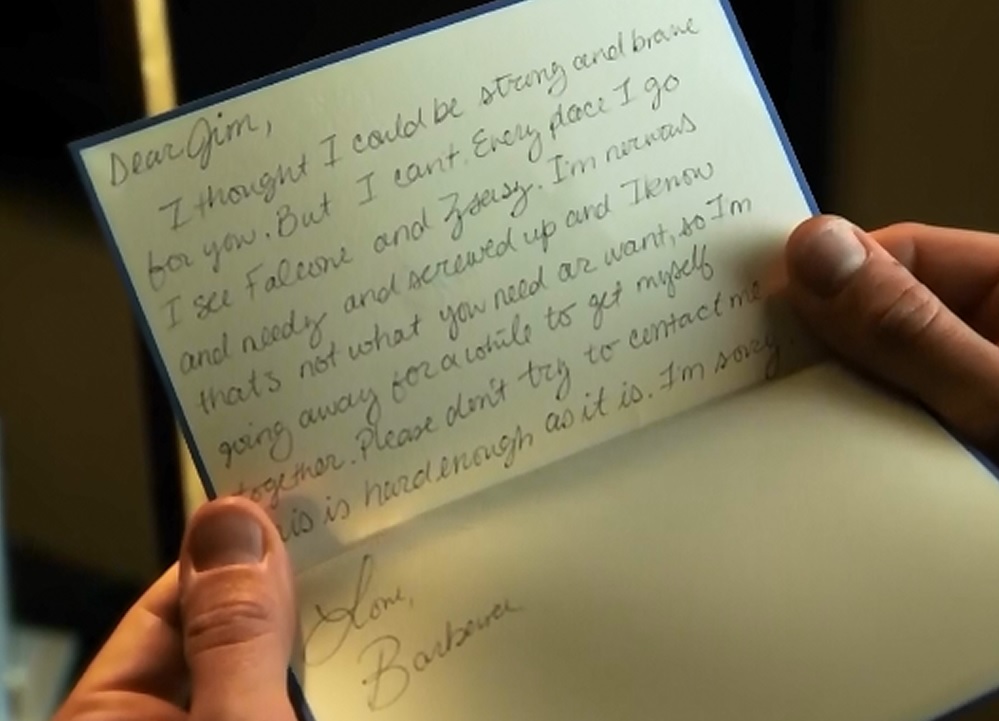 Dear Jim,
I thought I could be strong and brave
for you. But I can't. Every place I go
I see Falcone and Zsasz. I'm nervous
and needy and screwed up and I know
that's not what you need or want, so I'm
going away for a while to get myself
together. Please don't try to contact me
is is hard enough as it is. I'm sorry.
Love,
Barbara